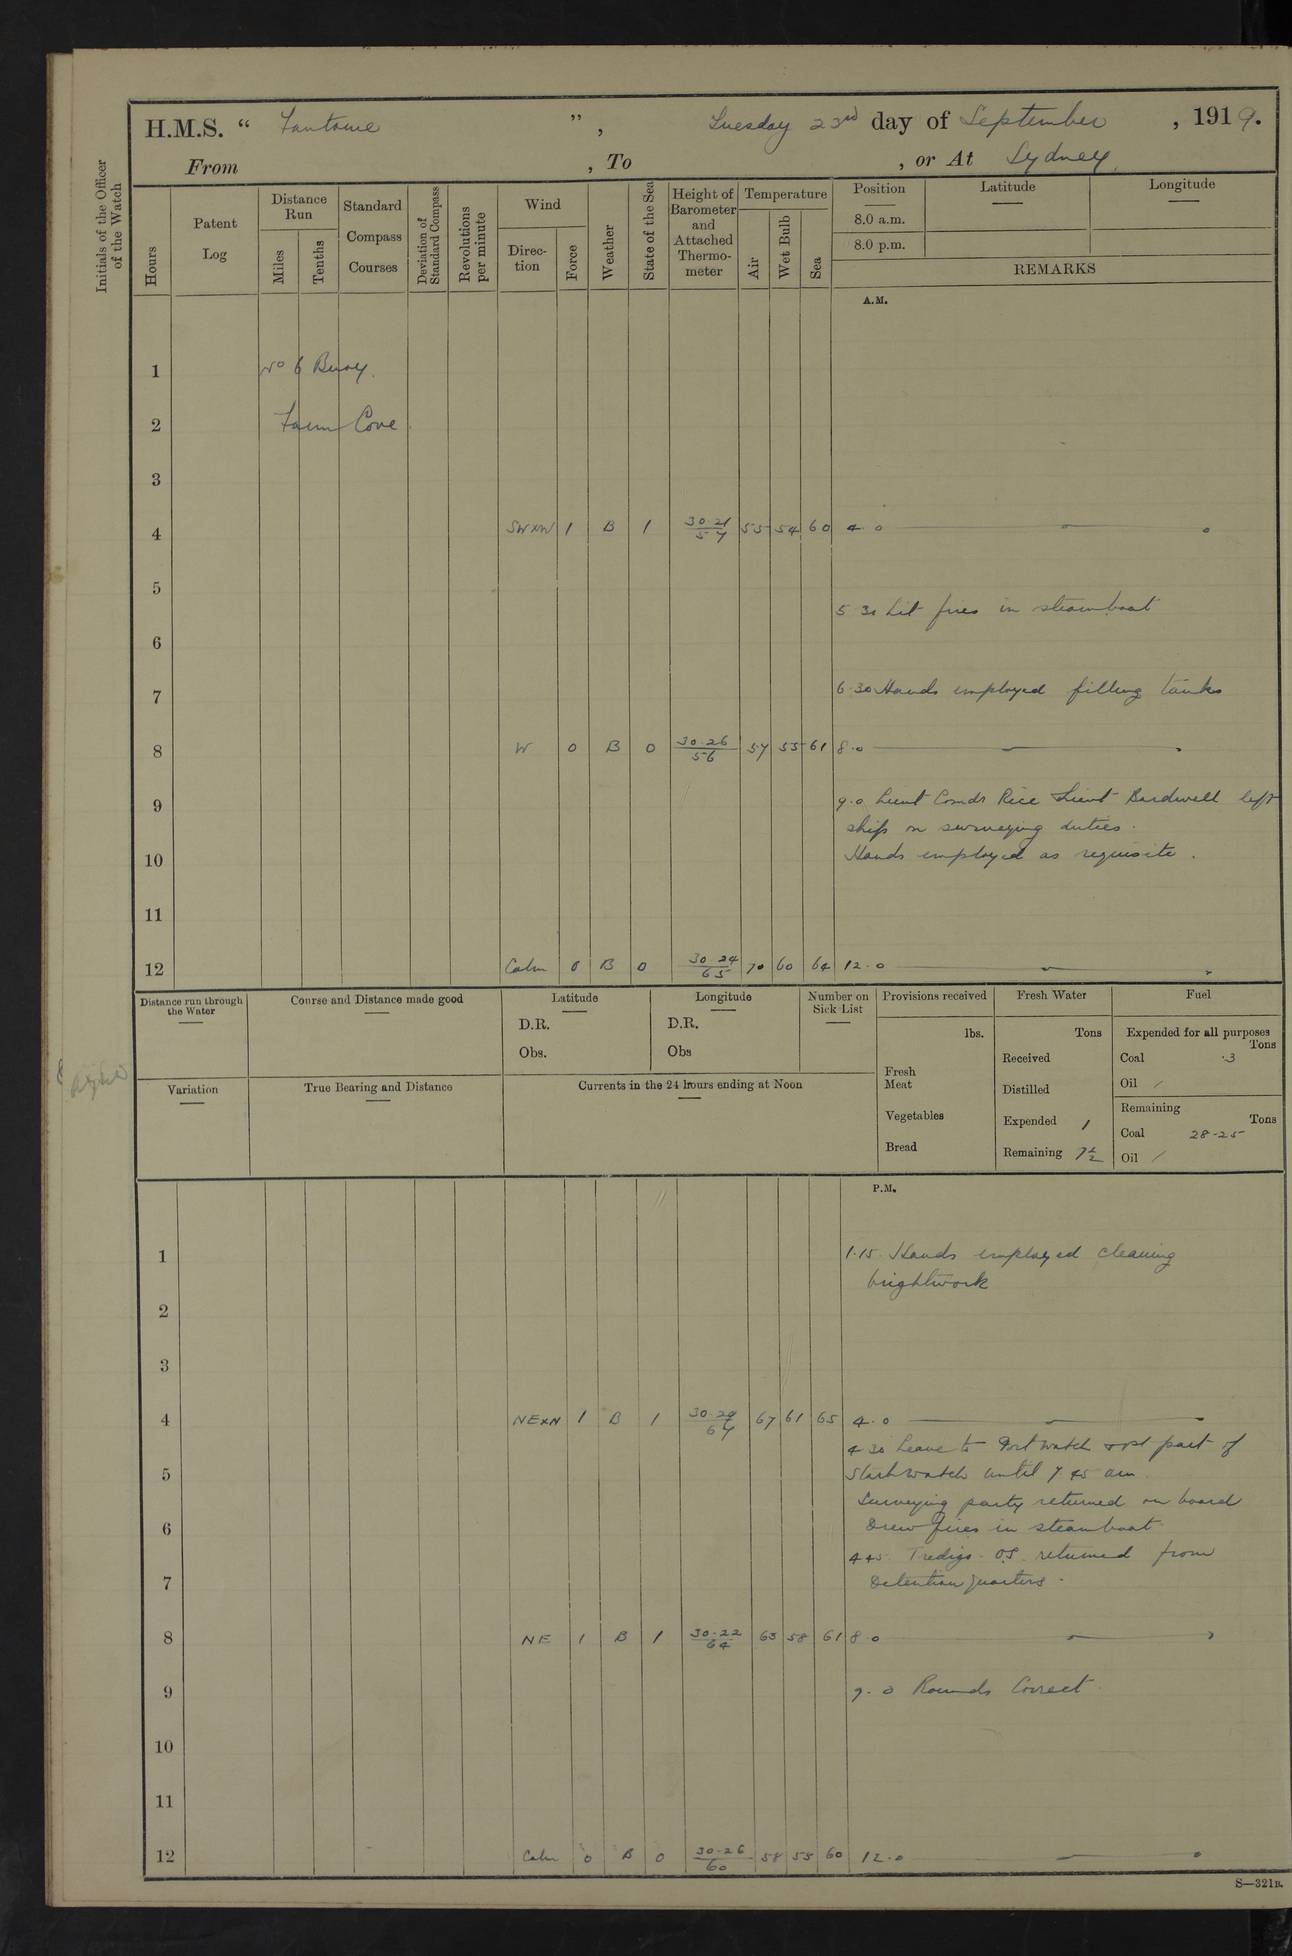 H.M.S. " Fantome ", Tuesday 23rd day of September, 1919.
From , To , or At Sydney.
Initials of the Officer of the Watch
Hours
Patent Log
Distance Run
Miles
Tenths
Standard Compass Courses
Deviation of Standard Compass
Revolutions per minute
Wind
Direction
Force
Weather
State of the Sea
Height of Barometer and Attached Thermometer
Temperature
Air
Wet Bulb
Sea
Position
8.0 a.m.
8.0 p.m.
Latitude
Longitude
REMARKS
A.M.
1 No 6 Buoy.
2 Farm Cove
3
4 SWxW 1 B 1 30.21 57 55 54 60 4.0
5
5.30 Lit fires in steamboat
6
7 6.30 Hands employed filling tanks
8 W 0 B 0 30.26 56 57 55 61 8.0
9 9.0 Lieut Comdr Rice Lieut Bardwell left
ship on surveying duties.
10 Hands employed as requisite.
11
12 Calm 0 B 0 30.24 65 70 60 64 12.0
Distance run through the Water
Course and Distance made good
Latitude
D.R.
Obs.
Longitude
D.R.
Obs
Number on Sick List
Provisions received
lbs.
Fresh Meat
Vegetables
Bread
Fresh Water
Tons
Received
Distilled
Expended 1
Remaining
Fuel
Expended for all purposes
Tons
Coal .3
Oil /
Remaining
Tons
Coal 28.25
Oil /
Variation
True Bearing and Distance
Currents in the 24 hours ending at Noon
P.M.
1 1.15 Hands employed cleaning
brightwork
2
3
4 NExN 1 B 1 67 61 65 4.0
4.30 Leave to Port Watch & 1st part of
5 Starb watch until 7.45 am.
Surveying party returned on board
6 Drew fires in steamboat
4.45 O.S. returned from
7 Detention quarters.
8 NE 1 B 1 30.22 64 63 58 61 8.0
9 9.0 Rounds Correct.
10
11
12 Calm 0 B 0 30.26 60 58 55 60 12.0
S—321B.